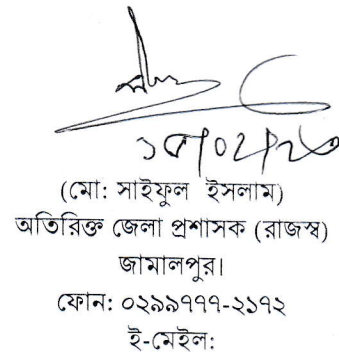 (মো: সাইফুল ইসলাম)
অতিরিক্ত জেলা প্রশাসক (রাজস্ব)
জামালপুর।
ফোন: ০২৯৯৭৭৭-২১৭২
ই-মেইল: